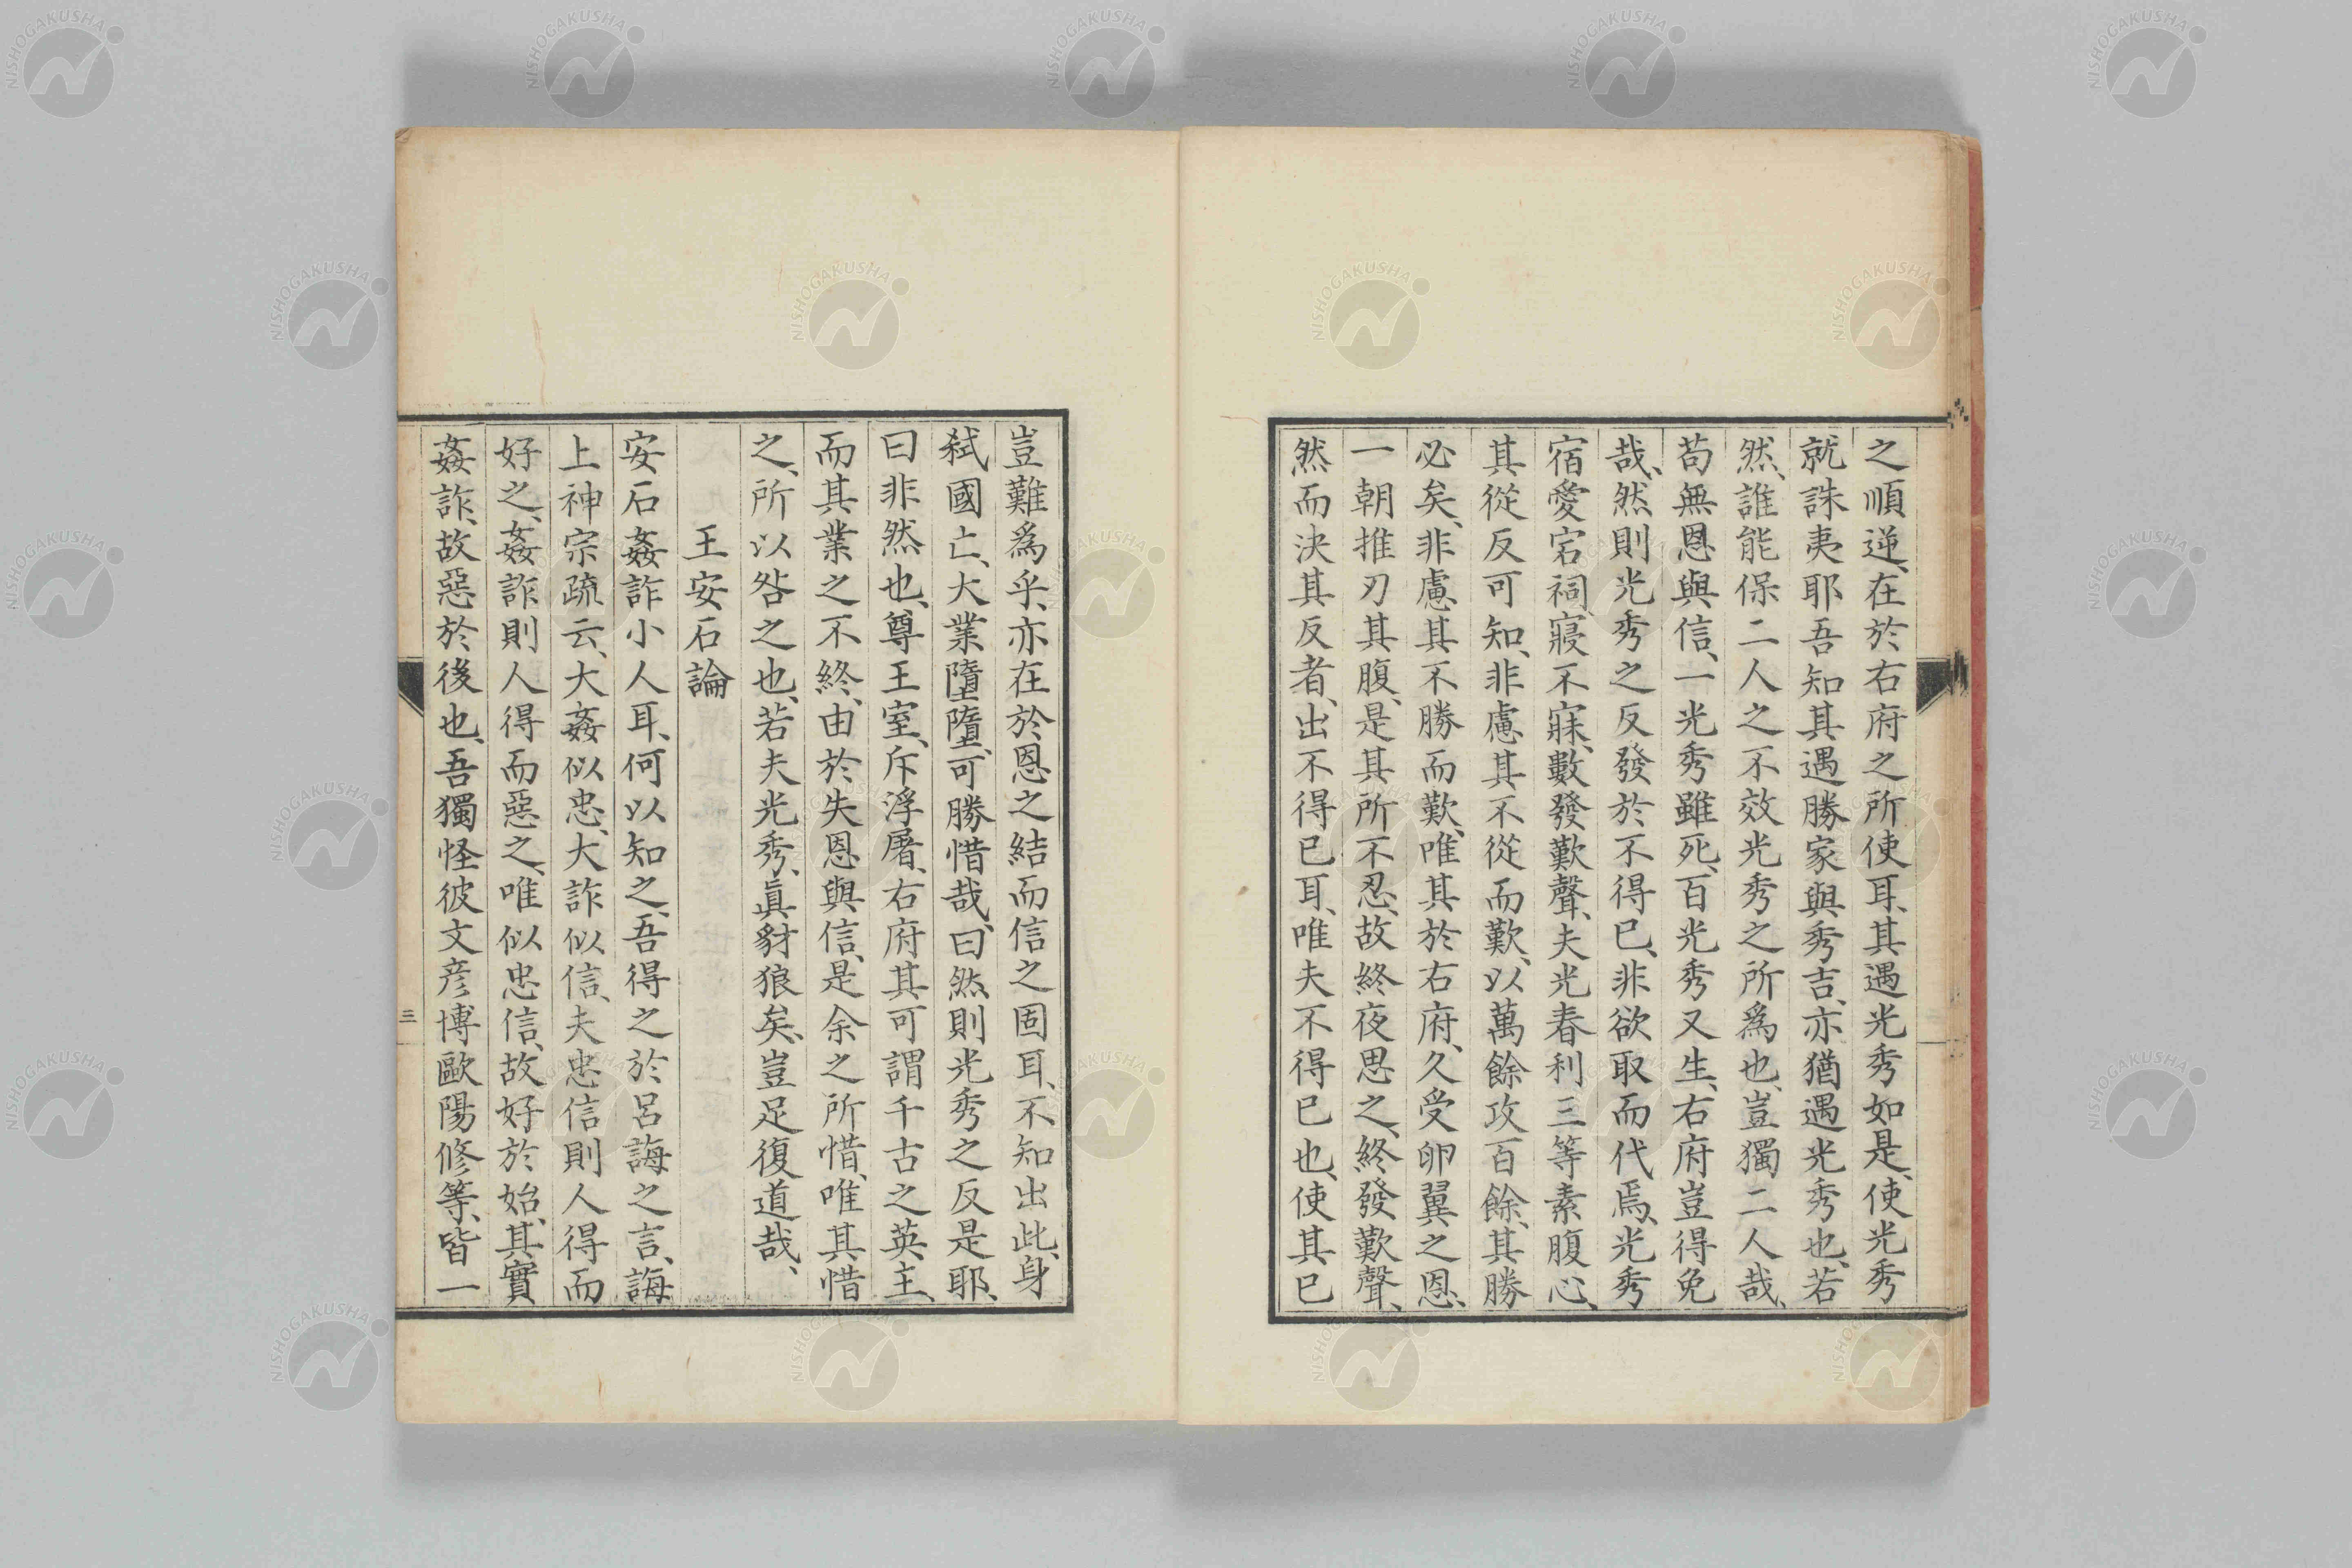 之順逆、在於右府之所使耳、其遇光秀如是、使光秀
就誅夷耶吾知其遇勝家與秀吉、亦猶遇光秀也、若
然、誰能保二人之不效光秀之所爲也、豈獨二人哉、
苟無恩與信、一光秀雖死、百光秀又生、右府豈得免
哉、然則光秀之反發於不得已、非欲取而代焉、光秀
宿愛宕祠、寢不寐、數發歎聲、夫光春利三等素腹心、
其從反可知、非慮其不從而歎、以萬餘攻百餘、其勝
必矣、非慮其不勝而歎、唯其於右府、久受卵翼之恩、
一朝推刃其腹、是其所不忍、故終夜思之、終發歎聲、
然而決其反者、出不得已耳、唯夫不得已也、使其已
豈難爲乎、亦在於恩之結而信之固耳、不知出此、身
弑國亡、大業墮墮、可勝惜哉、曰然則光秀之反是耶、
曰非然也、尊王室、斥浮屠、右府其可謂千古之英主、
而其業之不終、由於失恩與信、是余之所惜、唯其惜
之、所以咎之也、若夫光秀、眞豺狼矣、豈足復道哉、
王安石論
安石姦詐小人耳、何以知之、吾得之於呂誨之言、誨
上神宗疏云、大姦似忠、大詐似信、夫忠信則人得而
好之、姦詐則人得而惡之、唯似忠信、故好於始、其實
姦詐、故惡於後也、吾獨怪彼文彦博歐陽修等、皆一
三
NISHOGAKUSHA